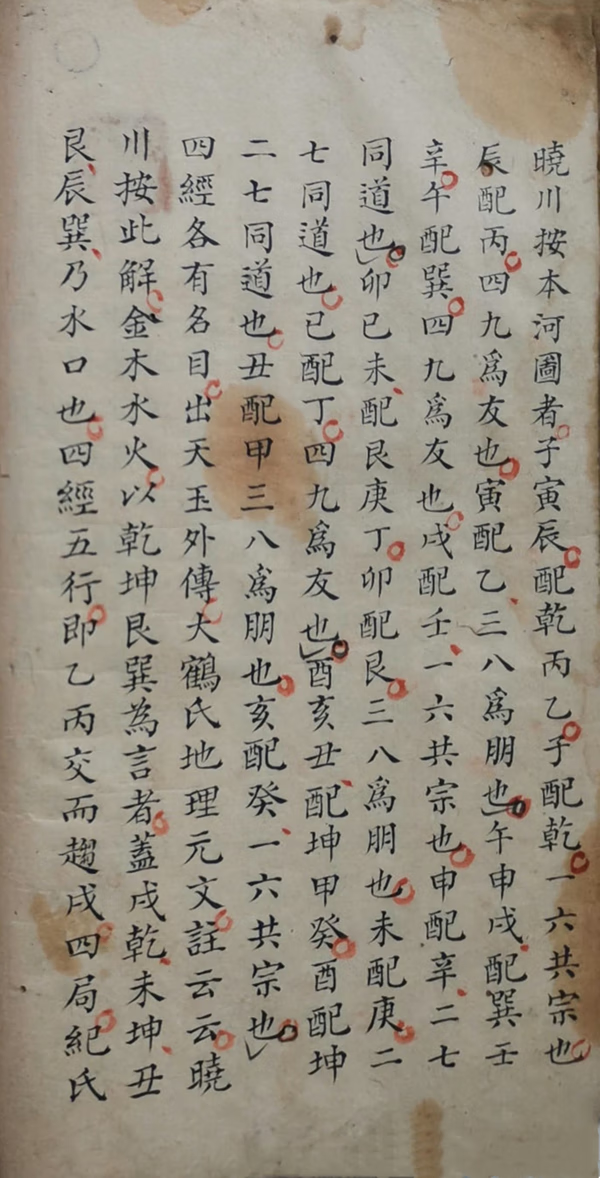 曉川按本河圖者子寅辰配乾丙乙子配乾一六共宗也
辰配丙四九爲友也寅配乙三八爲朋也午申戌配巽壬
辛午配巽四九爲友也戌配壬一六共宗也申配辛二七
同道也卯巳未配艮庚丁卯配艮三八爲朋也未配庚二
七同道也巳配丁四九爲友也酉亥丑配坤甲癸酉配坤
二七同道也丑配甲三八爲朋也亥配癸一六共宗也
四經各有名目出天玉外傳大鶴氏地理元文註云云曉
川按此解金木水火以乾坤艮巽為言者蓋戌乾未坤丑
艮辰巽乃水口也四經五行即乙丙交而趨戌四局紀氏